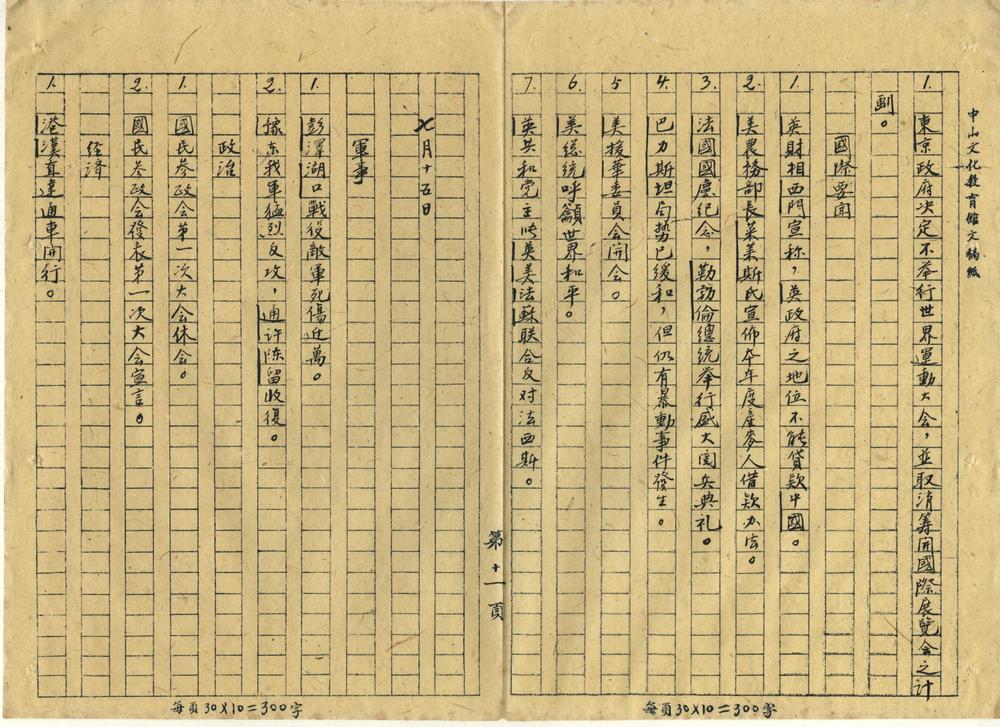 中山文化教育館文稿紙
1. 東京政府决定不举行世界運動大会，並取消筹開國際展覽会之计
劃。
國際要闻
1. 英財相西門宣称，英政府之地位不能貸款中國。
2. 美農務部長莱莱斯氏宣佈本年度產麥人借欵办法。
3. 法國國慶纪念，勒勃倫總统举行盛大阅兵典礼。
4. 巴力斯坦局势已缓和，但仍有暴動事件發生。
5 美援華委員会開会。
6. 美總统呼籲世界和平。
7. 英共和党主张英美法蘇联合反对法西斯。
第十一頁
七月十五日
軍事
1. 彭澤湖口戰役敵軍死傷近萬。
2. 豫东我軍猛烈反攻，通许陈留收復。
政治
1. 國民参政会第一次大会休会。
2. 國民参政会發表第一次大会宣言。
经济
1. 港漢直達通車開行。
每頁30×10=300字
每頁30×10=300字